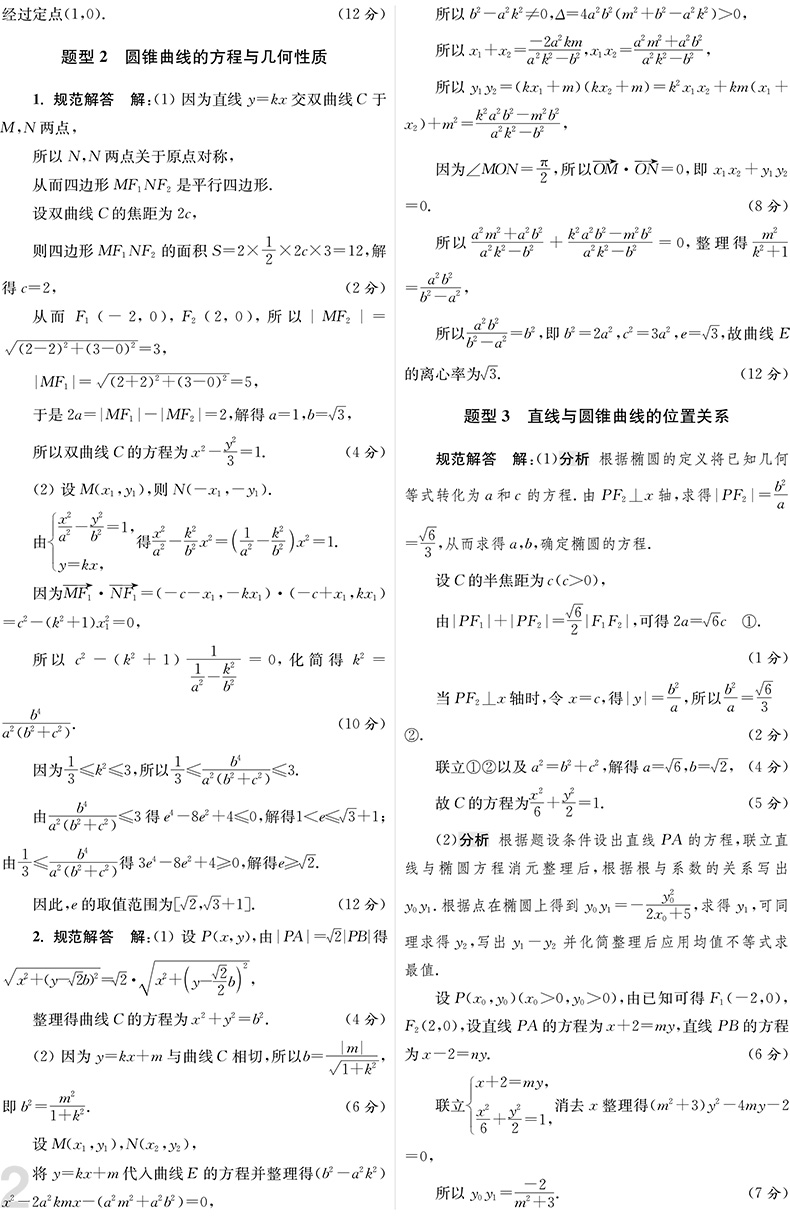 经过定点(1,0). (12 分)
题型 2 圆锥曲线的方程与几何性质
1. 规范解答 解:(1) 因为直线 y=kx 交双曲线 C 于
M,N 两点,
所以 N,N 两点关于原点对称,
从而四边形 MF₁NF₂ 是平行四边形.
设双曲线 C 的焦距为 2c,
则四边形 MF₁NF₂ 的面积 S=2×1/2×2c×3=12,解
得 c=2, (2 分)
从而 F₁(-2,0),F₂(2,0),所以|MF₂|=
√((2-2)²+(3-0)²)=3,
|MF₁|=√((2+2)²+(3-0)²)=5,
于是 2a=|MF₁|-|MF₂|=2,解得 a=1,b=√3,
所以双曲线 C 的方程为 x²-y²/3=1. (4 分)
(2) 设 M(x₁,y₁),则 N(-x₁,-y₁).
由{x²/a²-y²/b²=1, y=kx, 得x²/a²-k²/b² x²=(1/a²-k²/b²)x²=1.
因为MF₁→·NF₁→=(-c-x₁,-kx₁)·(-c+x₁,kx₁)
=c²-(k²+1)x₁²=0,
所以 c²-(k²+1) 1/(1/a²-k²/b²)=0,化简得 k²=
b⁴/(a²(b²+c²)). (10 分)
因为1/3≤k²≤3,所以1/3≤b⁴/(a²(b²+c²))≤3.
由b⁴/(a²(b²+c²))≤3 得 e⁴-8e²+4≤0,解得1<e≤√3+1;
由1/3≤b⁴/(a²(b²+c²))得 3e⁴-8e²+4≥0,解得e≥√2.
因此,e 的取值范围为[√2,√3+1]. (12 分)
2. 规范解答 解:(1) 设 P(x,y),由|PA|=√2|PB|得
√(x²+(y-√2b)²)=√2·√(x²+(y-√2/2 b)²),
整理得曲线 C 的方程为 x²+y²=b². (4 分)
(2) 因为 y=kx+m 与曲线 C 相切,所以b=|m|/√(1+k²),
即 b²=m²/(1+k²). (6 分)
设 M(x₁,y₁),N(x₂,y₂),
将 y=kx+m 代入曲线 E 的方程并整理得(b²-a²k²)
x²-2a²kmx-(a²m²+a²b²)=0,
2
所以 b²-a²k²≠0,Δ=4a²b²(m²+b²-a²k²)>0,
所以 x₁+x₂=-2a²km/(a²k²-b²),x₁x₂=(a²m²+a²b²)/(a²k²-b²),
所以 y₁y₂=(kx₁+m)(kx₂+m)=k²x₁x₂+km(x₁+
x₂)+m²=(k²a²b²-m²b²)/(a²k²-b²),
因为∠MON=π/2,所以OM→·ON→=0,即 x₁x₂+y₁y₂
=0. (8 分)
所以 (a²m²+a²b²)/(a²k²-b²)+(k²a²b²-m²b²)/(a²k²-b²)=0,整理得 m²/(k²+1)
=a²b²/(b²-a²),
所以a²b²/(b²-a²)=b²,即 b²=2a²,c²=3a²,e=√3,故曲线 E
的离心率为√3. (12 分)
题型 3 直线与圆锥曲线的位置关系
规范解答 解:(1)分析 根据椭圆的定义将已知几何
等式转化为 a 和 c 的方程.由 PF₂⊥x 轴,求得|PF₂|=b²/a
=√6/3,从而求得 a,b,确定椭圆的方程.
设 C 的半焦距为 c(c>0),
由|PF₁|+|PF₂|=√6/2|F₁F₂|,可得 2a=√6c ①.
(1 分)
当 PF₂⊥x 轴时,令 x=c,得|y|=b²/a,所以b²/a=√6/3
②. (2 分)
联立①②以及 a²=b²+c²,解得 a=√6,b=√2, (4 分)
故 C 的方程为x²/6+y²/2=1. (5 分)
(2)分析 根据题设条件设出直线 PA 的方程,联立直
线与椭圆方程消元整理后,根据根与系数的关系写出
y₀y₁.根据点在椭圆上得到 y₀y₁=-y₀²/(2x₀+5),求得 y₁,可同
理求得 y₂,写出 y₁-y₂ 并化简整理后应用均值不等式求
最值.
设 P(x₀,y₀)(x₀>0,y₀>0),由已知可得 F₁(-2,0),
F₂(2,0),设直线 PA 的方程为 x+2=my,直线 PB 的方程
为 x-2=ny. (6 分)
联立{x+2=my, x²/6+y²/2=1, 消去 x 整理得(m²+3)y²-4my-2
=0,
所以 y₀y₁=-2/(m²+3). (7 分)